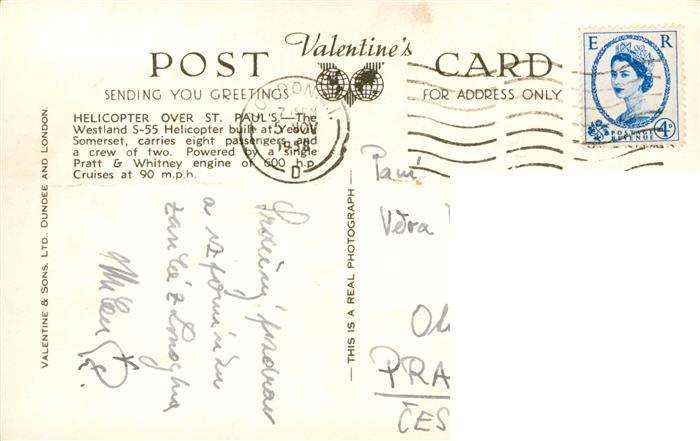 POST Valentine's CARD
SENDING YOU GREETINGS FOR ADDRESS ONLY
HELICOPTER OVER ST. PAUL'S—The
Westland S-55 Helicopter built at Yeovil,
Somerset, carries eight passengers and
a crew of two. Powered by a single
Pratt & Whitney engine of 600 h.p.
Cruises at 90 m.p.h.
VALENTINE & SONS. LTD. DUNDEE AND LONDON.
— THIS IS A REAL PHOTOGRAPH —
NOV
1958
D
E R
POSTAGE
REVENUE
4D
Srdečný pozdrav
a vzpomínku
zasílá z Londýna
Milan
Paní
Věra
Ol
PRA
ČES